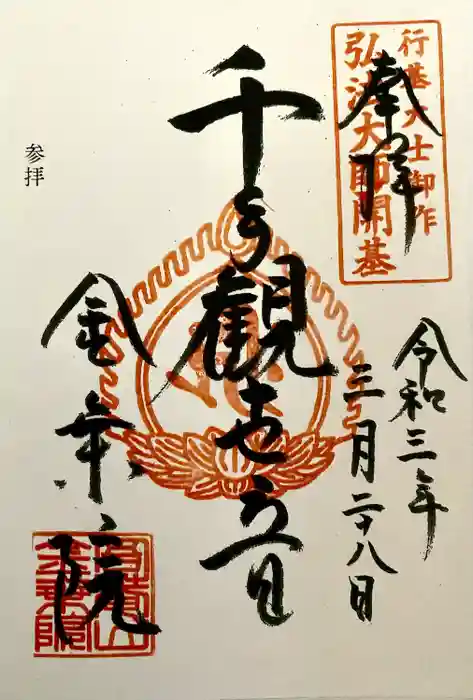 行基大士御作
弘法大師開基
奉拝
令和三年
三月二十八日
千手観世音
金乗院
参拝